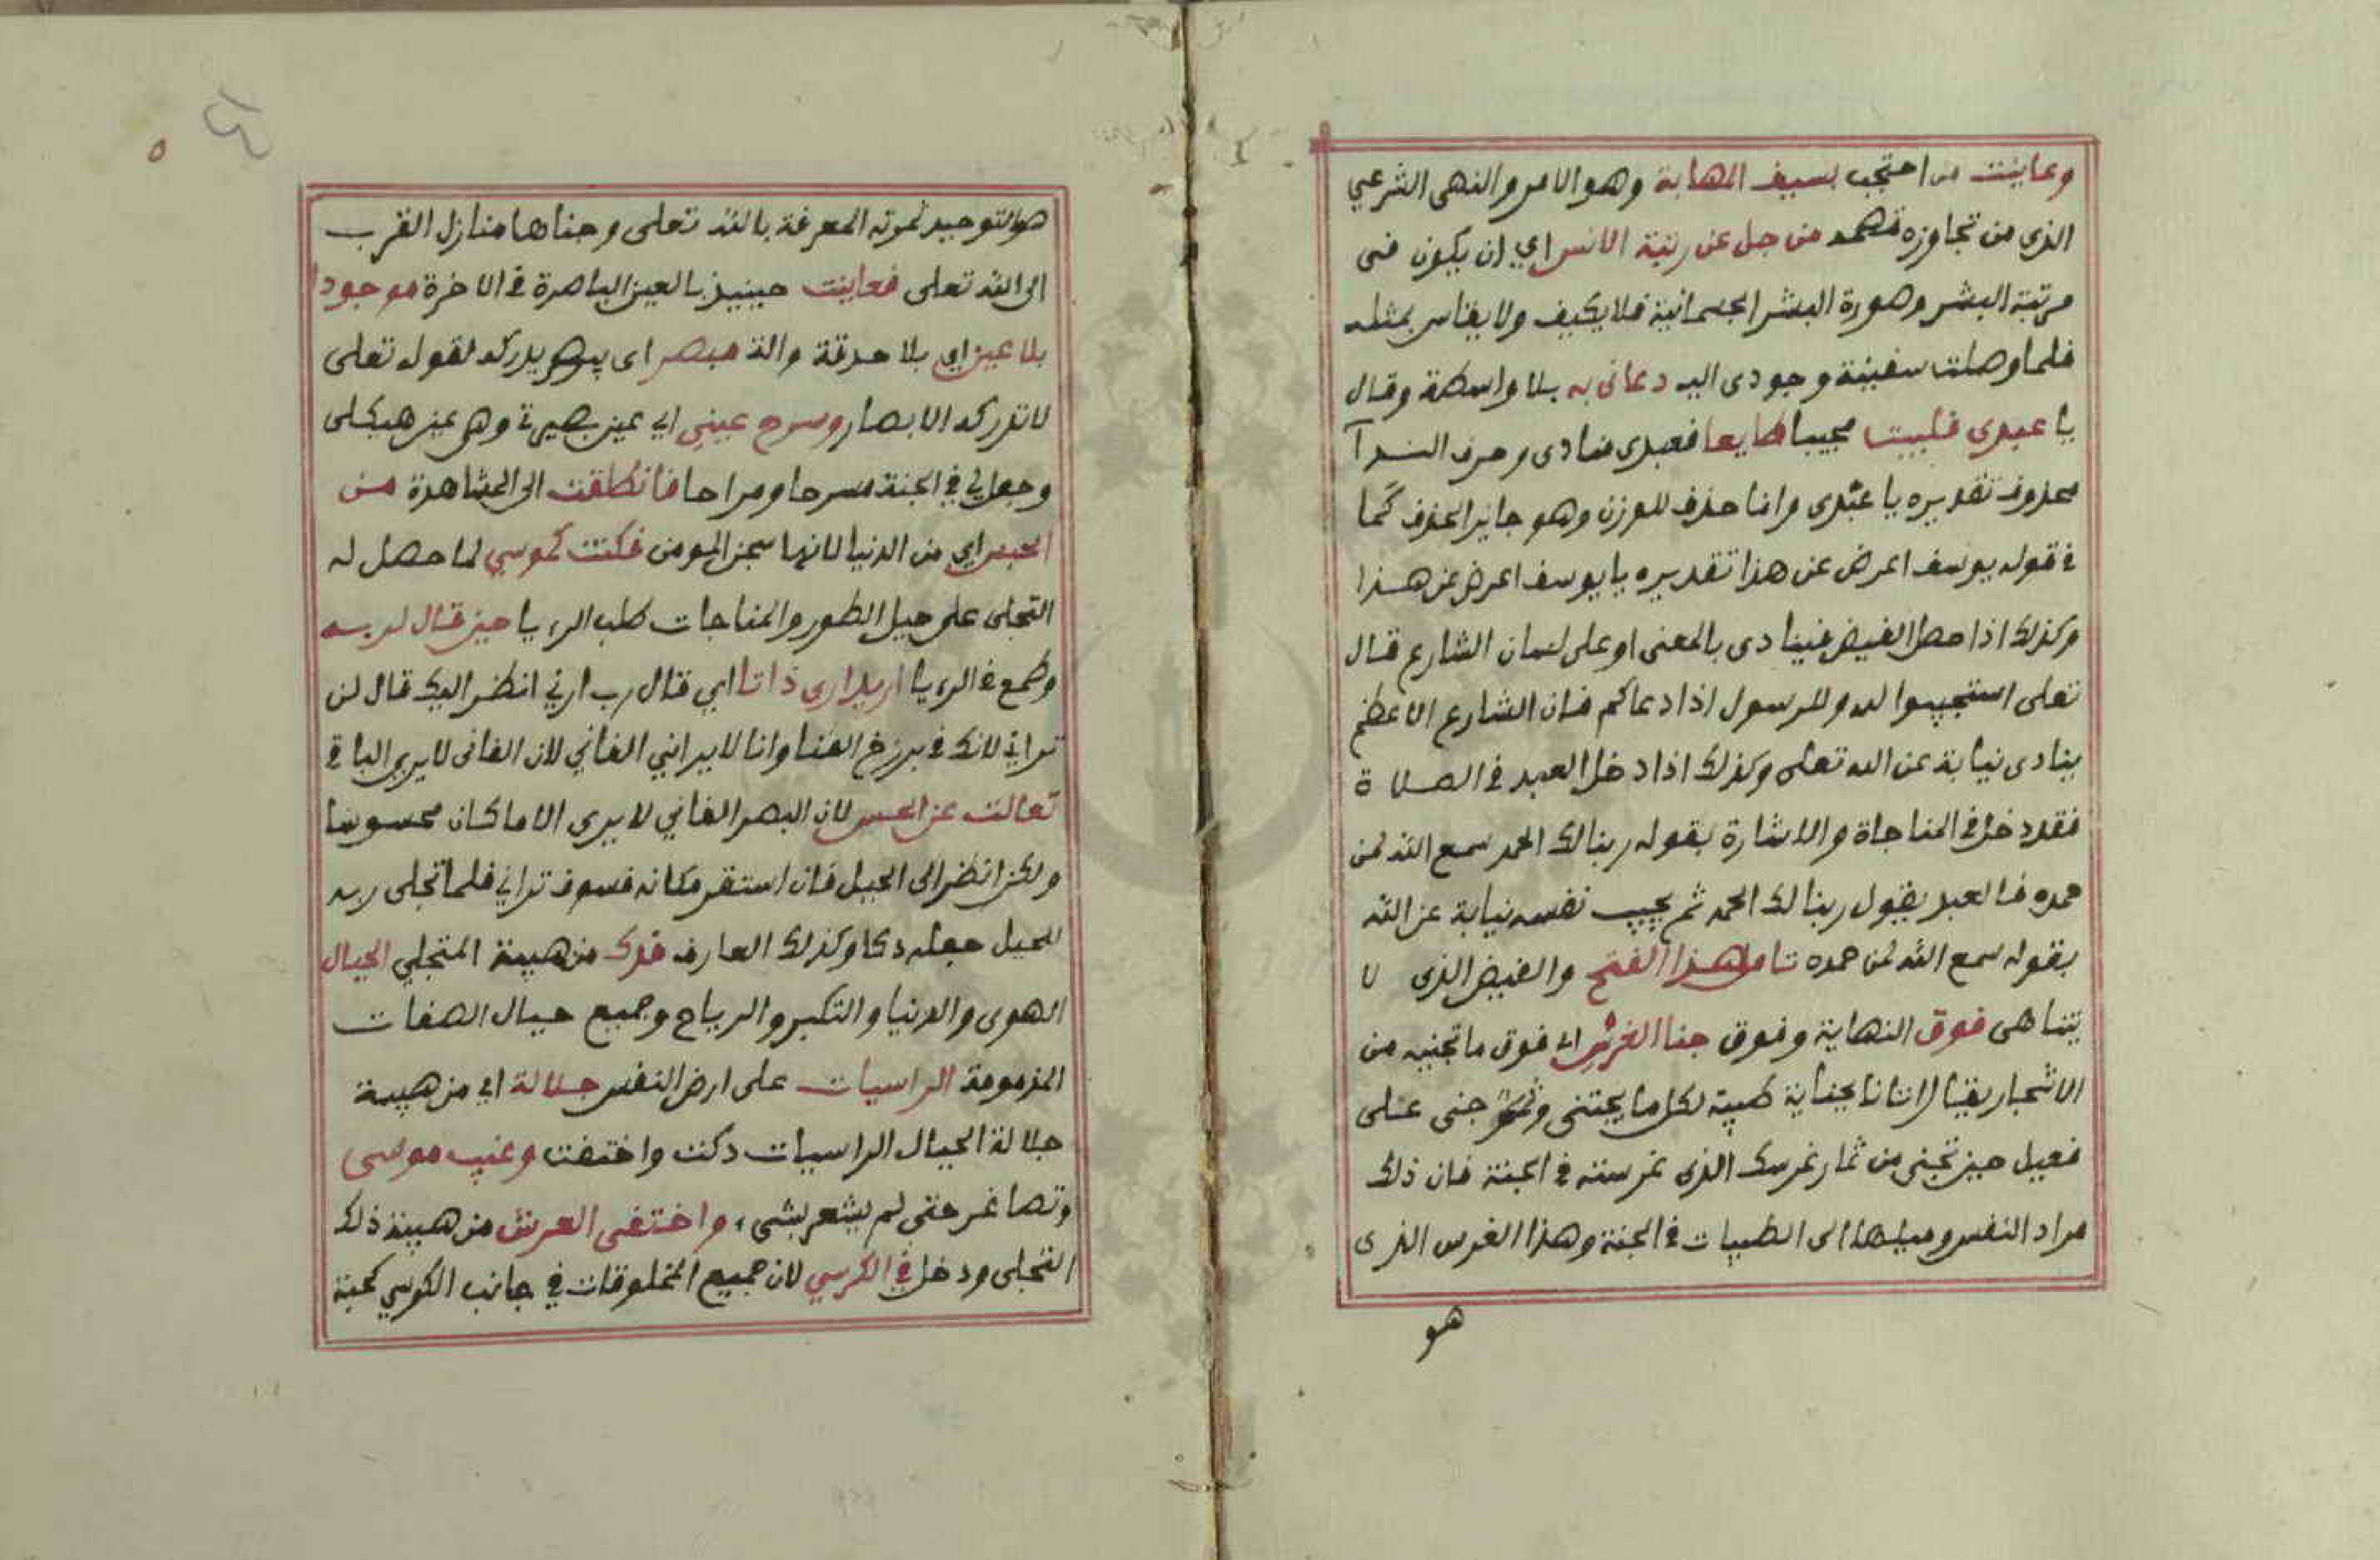 وعاينت من احتجب بسيف المهابة وهو الامر والنهى الشرعي
الذي من تجاوزه قصمه من جل عن رتبة الانس اي ان يكون فى
مرتبة البشر وصورة البشر الجسمانية فلا يكيف ولا يقاس بمثله
فلما وصلت سفينة وجودى اليه دعانى به بلا واسطة وقال
يا عبدى فلبيت مجيبا طايعا فعبدى منادى وحرف الندآ
محذوف تقديره يا عبدى وانما حذف للوزن وهو جايز الحذف كما
فى قوله يوسف اعرض عن هذا تقديره يا يوسف اعرض عن هذا
وكذلك اذا حصل الفيض فينادى بالمعنى او على لسان الشارع قال
تعلى استجيبوا لله وللرسول اذا دعاكم فان الشارع الاعظم
ينادى نيابة عن الله تعلى وكذلك اذا دخل العبد فى الصلاة
فقد دخل فى المناجاة والاشارة بقوله ربنا لك الحمد سمع الله لمن
حمده فالعبد يقول ربنا لك الحمد ثم يجيب نفسه نيابة عن الله
بقوله سمع الله لمن حمده تامل هذا الفتح والفيض الذى لا
يتناهى فوق النهاية وفوق جنا الغرس اى فوق ما تجنيه من
الاشجار يقال اتانا بجناية طيبة لكل ما يجتنى وثمر جنى على
فعيل حين تجنى من ثمار غرسك الذى غرسته فى الجنة فان ذلك
مراد النفس وميلها الى الطيبات فى الجنة وهذا الغرس الذى
هو
٥
هو التوحيد ثمرته المعرفة بالله تعلى وجناها منازل القرب
الى الله تعلى فعاينت حينيذ بالعين الباصرة فى الاخرة موجودا
بلا عين اي بلا حدقة والة مبصر اى يدركه لقوله تعلى
لا تدركه الابصار وسرح عيني اي عين بصيرة وهى عين هيكلى
وجعل لي في الجنة مسرحا ومراحا فانطلقت الى المشاهدة من
الحبس اي من الدنيا لانها سجن المومن فكنت كموسي لما حصل له
التجلى على جبل الطور والمناجات طلب الريا حين قال لربه
وطمع فى الريا اريد ارى ذاتا اي قال رب ارني انظر اليك قال لن
تراني لانك فى برزخ الفنا وانا لا يراني الفاني لان الفانى لا يرى الباقى
تعالت عن الحس لان البصر الفاني لا يرى الا ما كان محسوسا
ولكن انظر الى الجبل فان استقر مكانه فسوف تراني فلما تجلى ربه
للجبل جعله دكا وكذلك العارف فدك من هيبة المتجلي الجبال
الهوى والدنيا والتكبر والرياح وجميع جبال الصفات
المذمومة الراسيات على ارض النفس جلالة اي من هيبة
جلالة الجبال الراسيات دكت واختفت وغيب موسى
وتصاغر حتى لم يشعر بشىء واختفى العرش من هيبة ذلك
التجلى ودخل في الكرسي لان جميع المخلوقات في جانب الكرسي كحبة